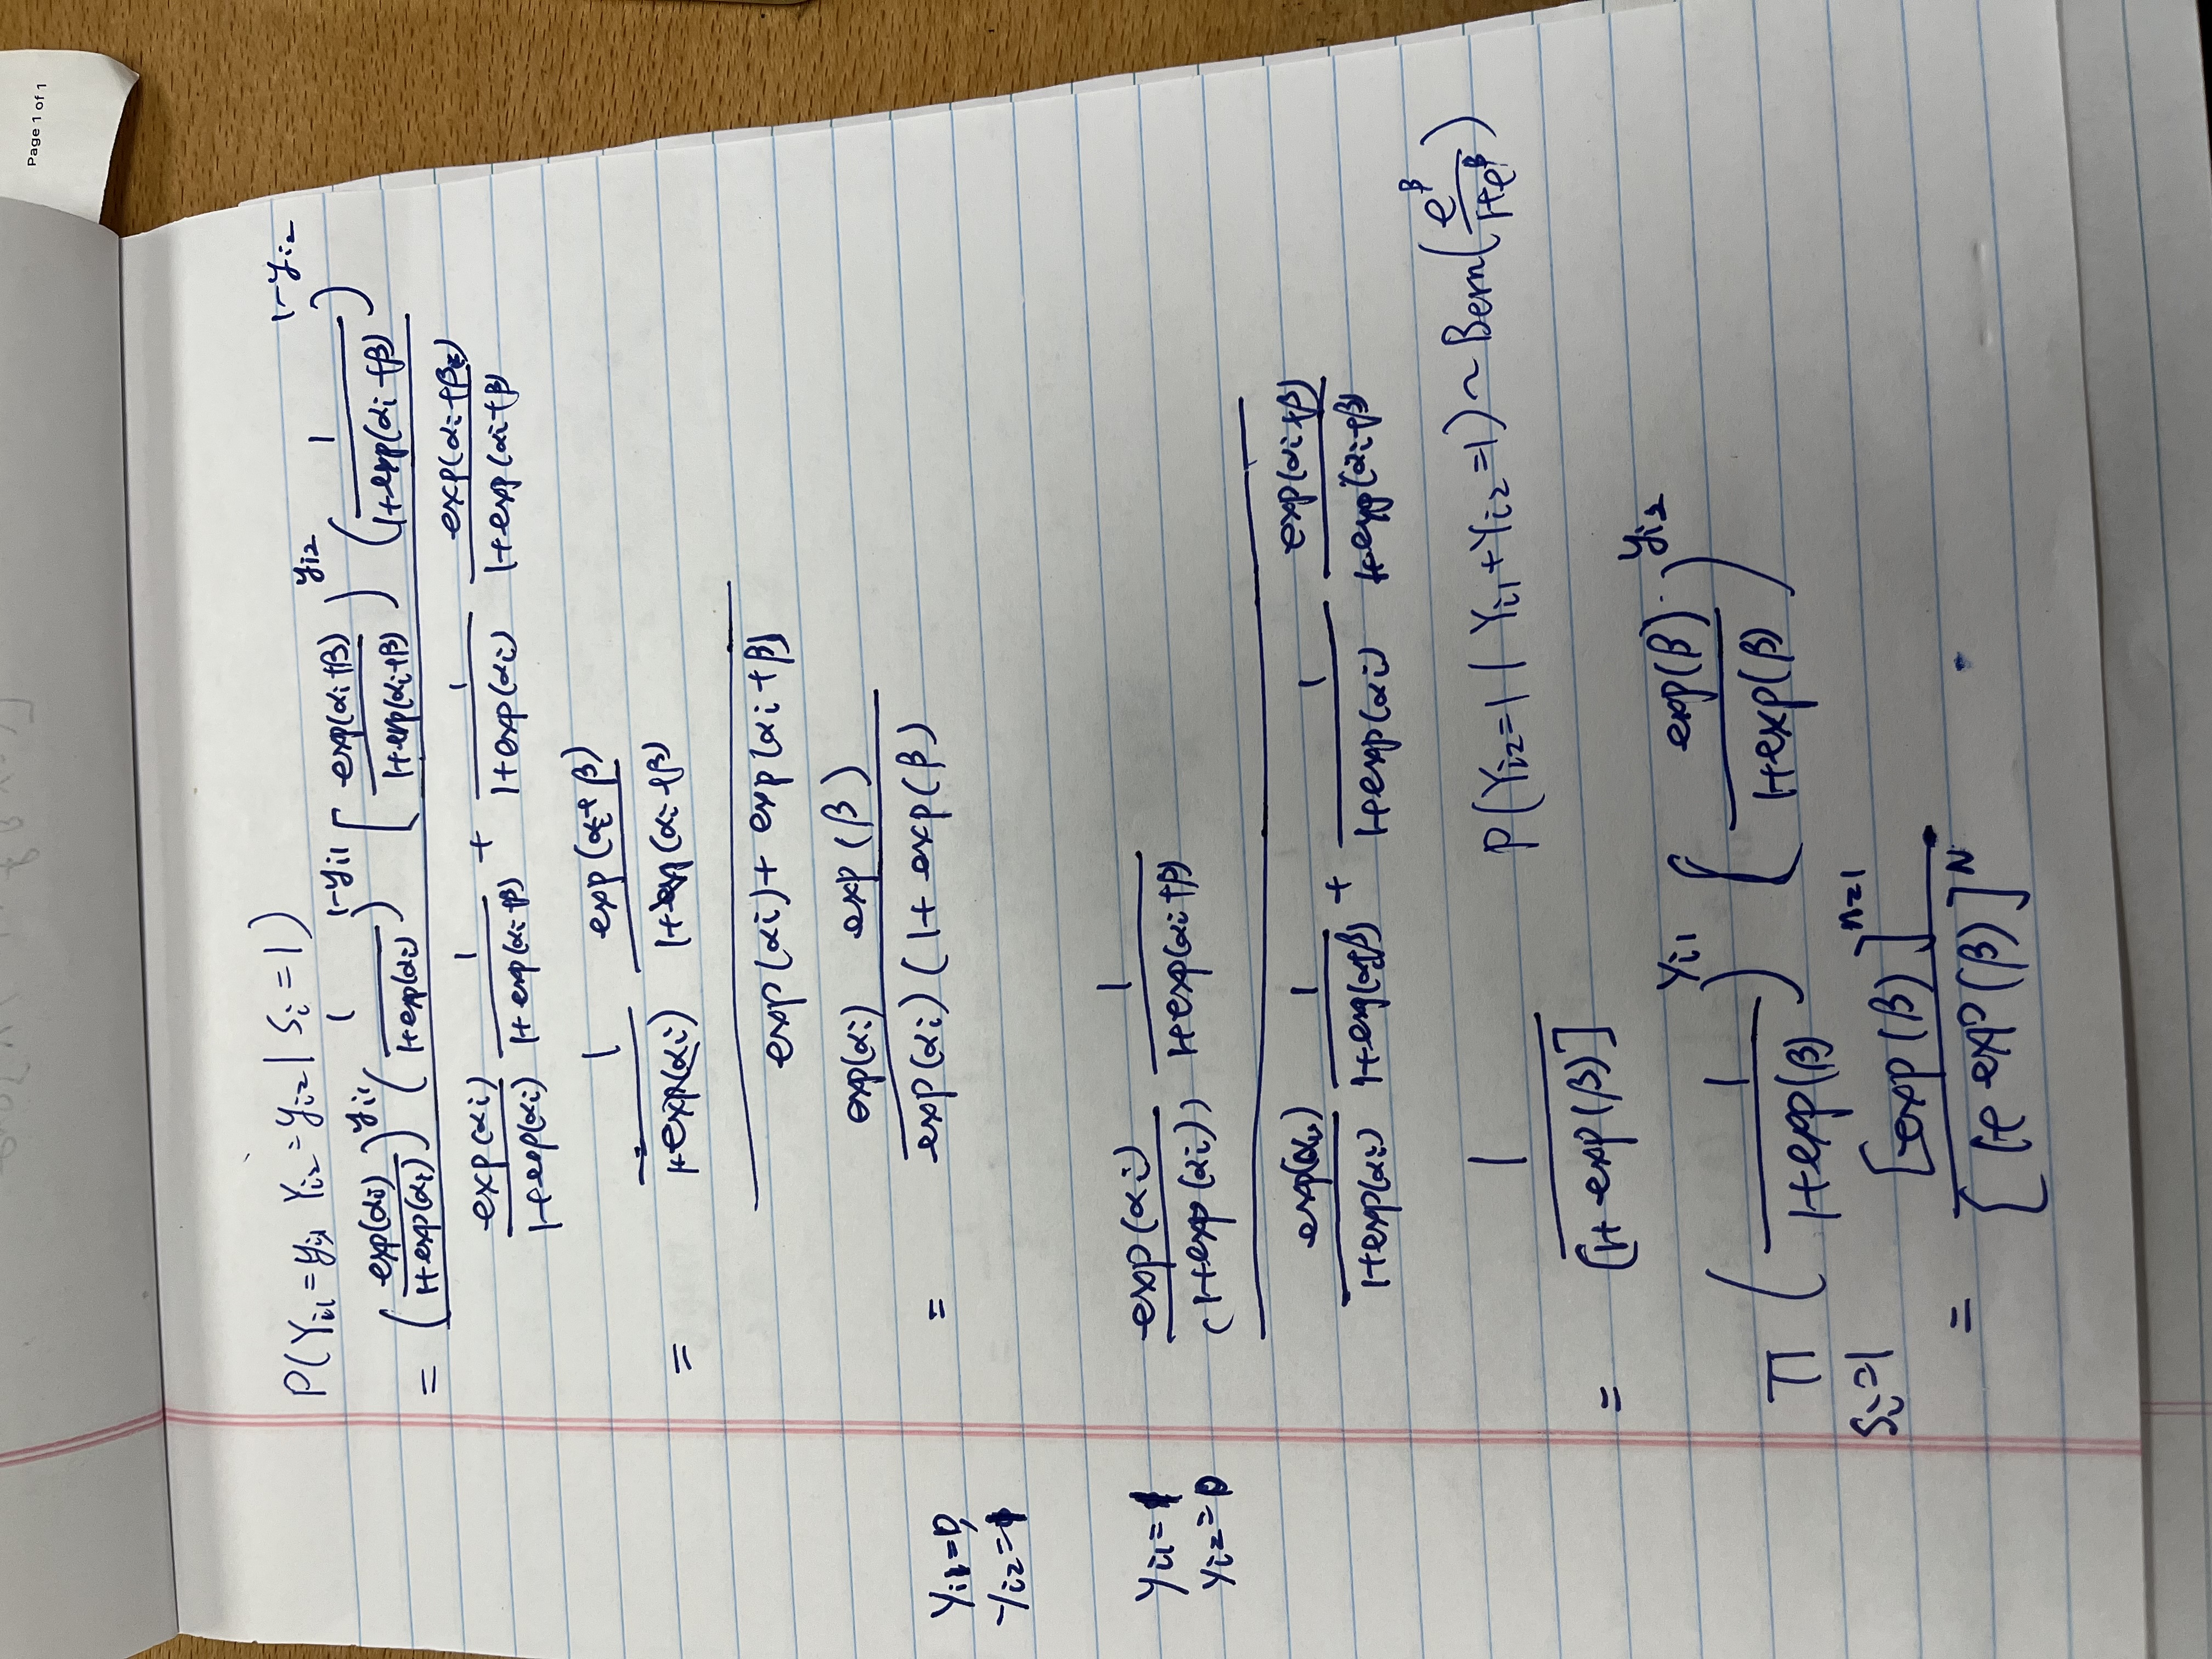 Page 1 of 1
P(Y_{i1} = y_{i1} Y_{i2} = y_{i2} | S_i = 1)
= (exp(α_i) / 1+exp(α_i))^{y_{i1}} (1 / 1+exp(α_i))^{1-y_{i1}} [exp(α_i+β) / 1+exp(α_i+β))^{y_{i2}} (1 / (1+exp(α_i+β))^{1-y_{i2}}
exp(α_i) / 1+exp(α_i) 1 / 1+exp(α_i+β) + 1 / 1+exp(α_i) exp(α_i+β) / 1+exp(α_i+β)
= 1 / 1+exp(α_i) exp(α_i+β) / 1+exp(α_i+β)
exp(α_i) + exp(α_i+β)
Y_{i1}=0,
Y_{i2}=1
= exp(α_i) exp(β) / exp(α_i)(1+exp(β)
Y_{i1}=1
Y_{i2}=0
exp(α_i) / (1+exp(α_i)) 1 / 1+exp(α_i+β)
exp(α_i) / 1+exp(α_i) 1 / 1+exp(α_i+β) + 1 / 1+exp(α_i) exp(α_i+β) / 1+exp(α_i+β)
= 1 / [1+exp(β)] P(Y_{i2}=1 | Y_{i1}+Y_{i2}=1) ~ Bern(e^β / 1+e^β)
Π S_i=1 (1 / 1+exp(β))^{Y_{i1}} { exp(β) / 1+exp(β) )^{y_{i2}}
= [exp(β)]^{n21} / [1+exp(β)]^N